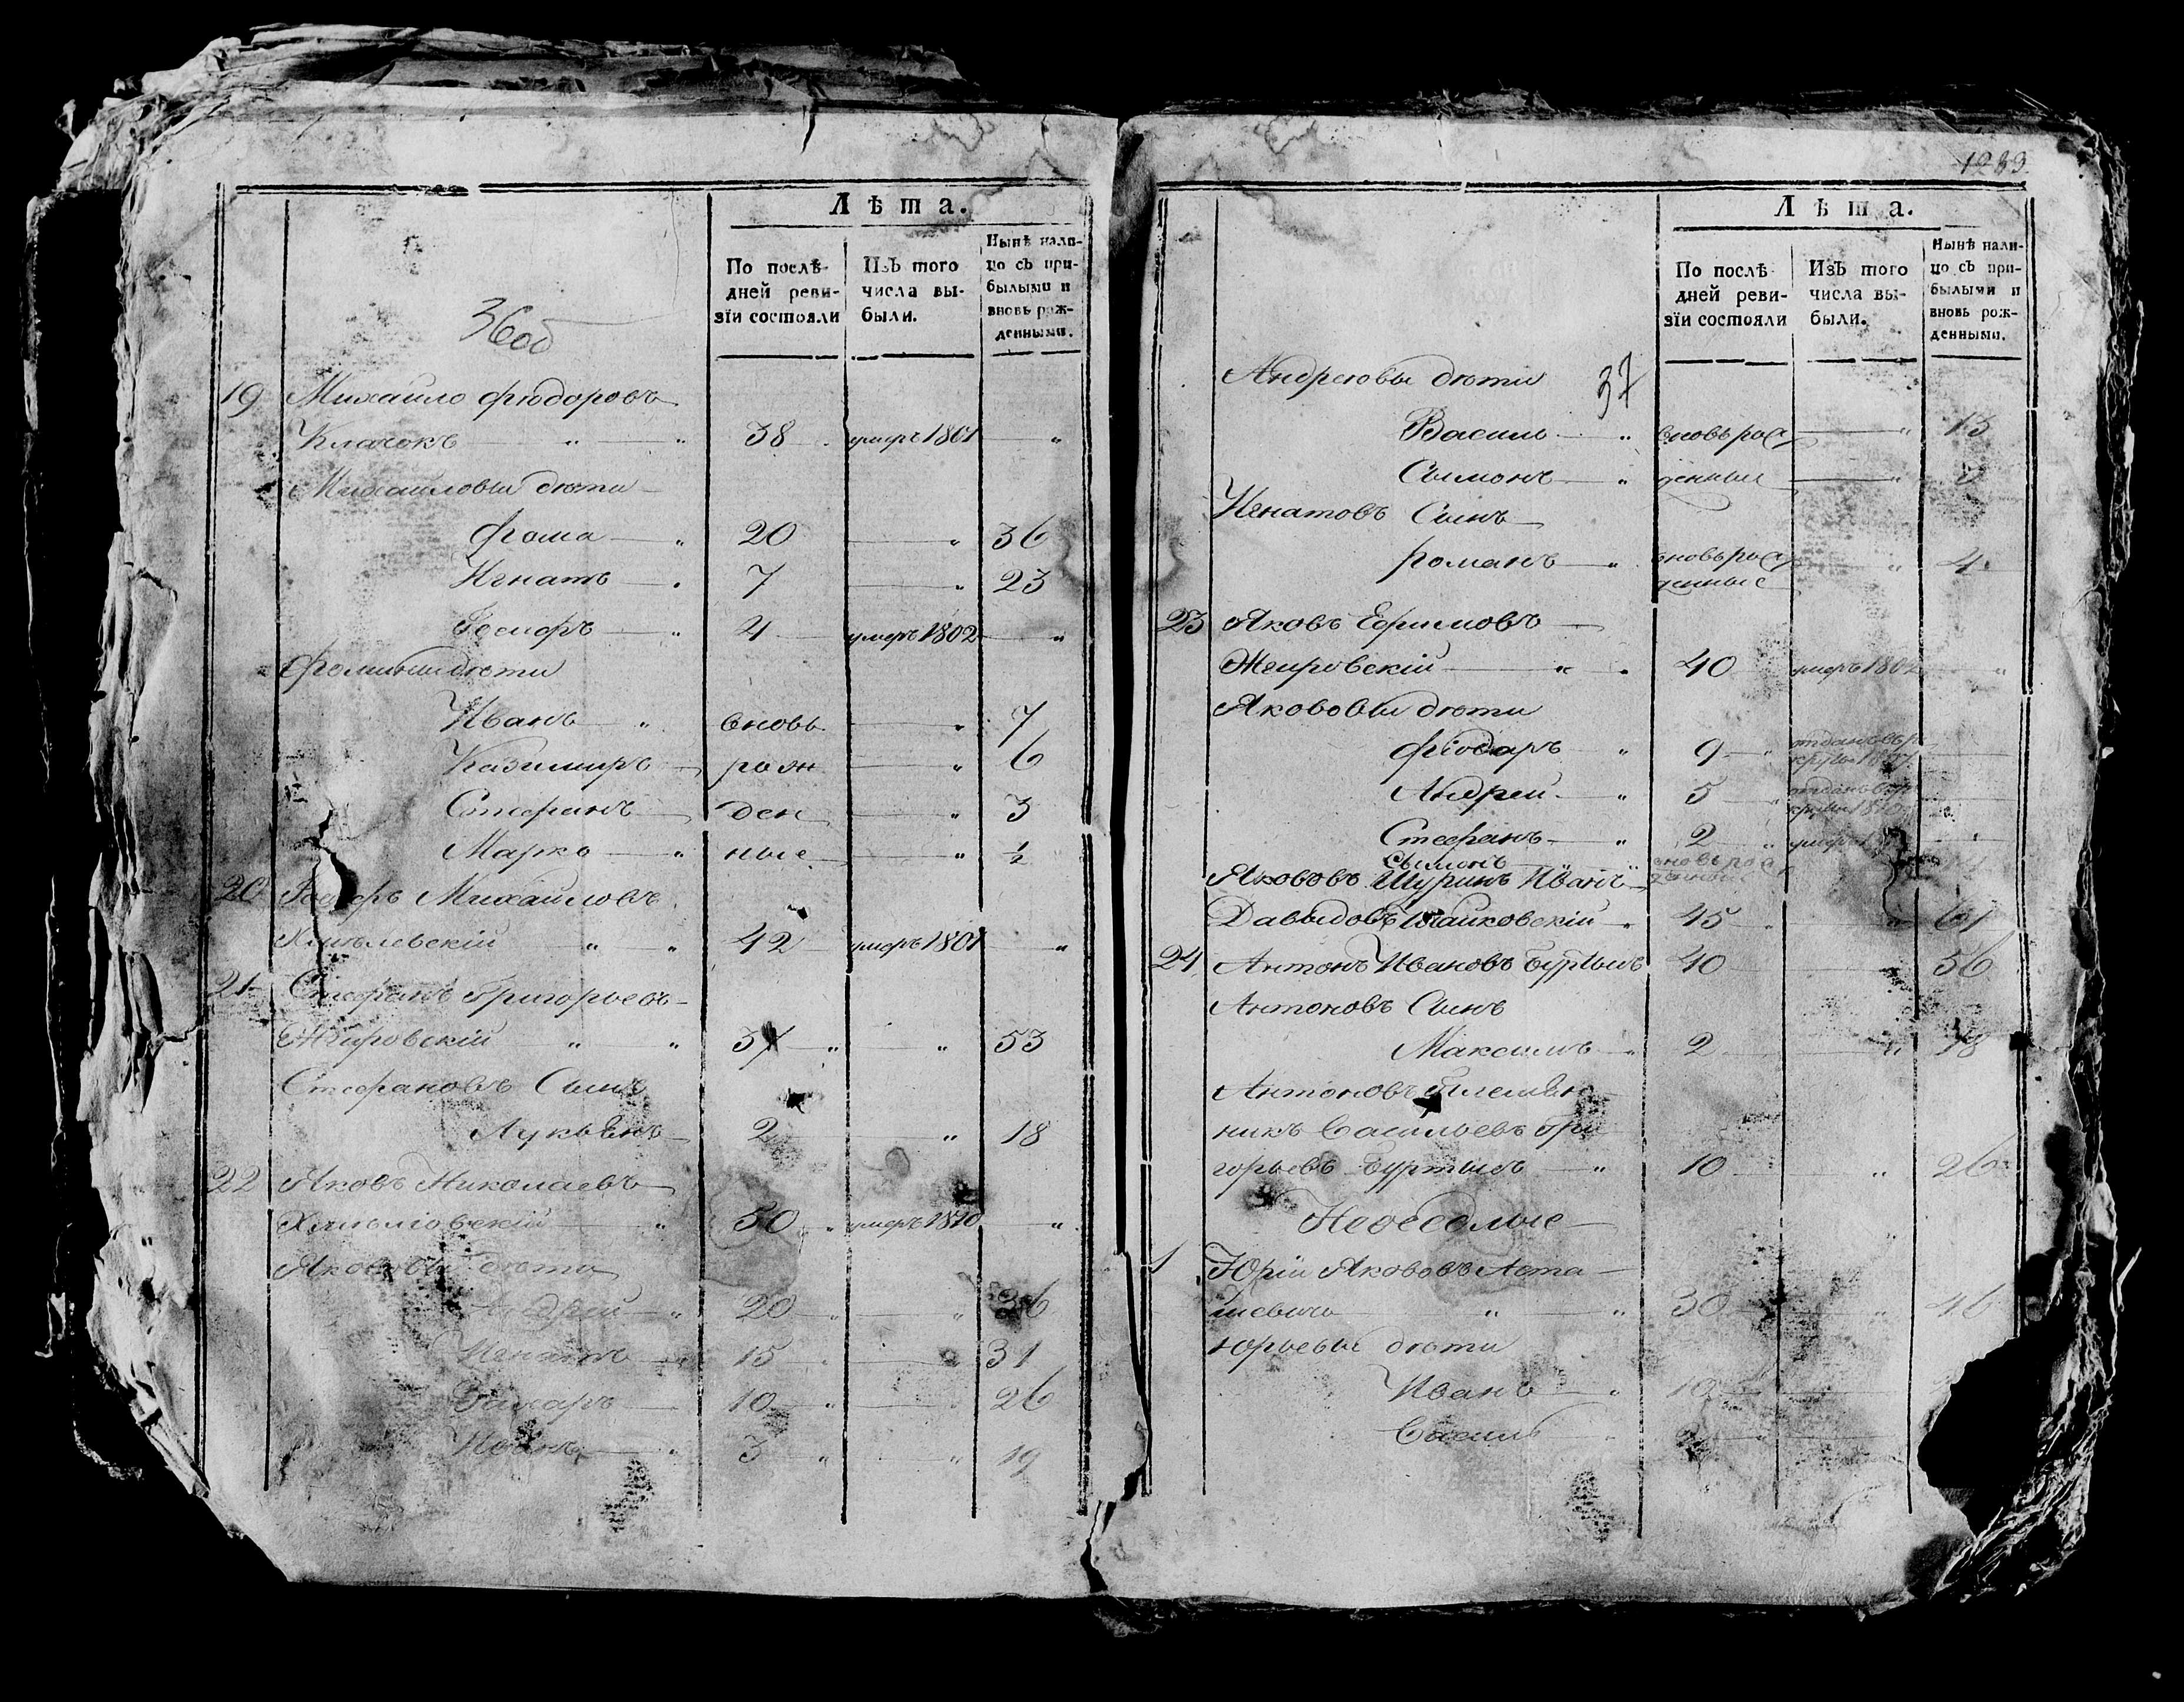 Лѣта.
По послѣдней ревизіи состояли
Изъ того числа выбыли.
Нынѣ налицо съ прибылыми и вновь рожденными.
36об
19 Михайло Фюдоровъ
Клачокъ " " 38 умеръ 1801 "
Михайловы дѣти
Фома " 20 " 36
Игнатъ 7 " 23
" 4 умеръ 1802 "
Фомины дѣти
Иванъ " вновь " 7
Казимиръ рож " 6
Стефанъ ден " 3
Марко " ные " 1/2
20 Михайловъ
" " 42 умеръ 1801 "
21 Стефанъ Григорьевъ
Жгировскій " " 37 " " 53
Стефановъ Сынъ
Лукьянъ 2 " 18
22 Яковъ Николаевъ
" 50 " умеръ 1810 "
Яковovы дѣти
Андрей " 20 " " 36
Игнатъ 15 31
10 " 26
Иванъ 3 " " 19
1233
Лѣта.
По послѣдней ревизіи состояли
Изъ того числа выбыли.
Нынѣ налицо съ прибылыми и вновь рожденными.
37
Андреювы дѣти
Василь " вновь рож " 13
Сымонъ " денные "
Игнатовъ Сынъ
Романъ " вновь рож " 4
денные
23 Яковъ Ефимовъ
Жгировскій " " 40 умеръ "
Яковoвы дѣти
Фіодаръ " 9 " отданъ въ рекруты
Андрей " 5 " отданъ въ рекруты 1810
Стефанъ " 2 " умеръ "
Сымонъ " " вновь рож
Якововъ Шуринъ Иванъ денный
Давыдовъ " 45 " " 61
24 Антонъ Ивановъ Буртыль 40 56
Антоновъ Сынъ
Максимъ " 2 " 18
Антоновъ племен
никъ Васильевъ Гри
горьевъ Буртыль " 10 " 26
Неоседлые
1 Юрій Якововъ Аста
шевичъ " " 30 " 46
Юрьевы дѣти
Иванъ " 10
Василь "